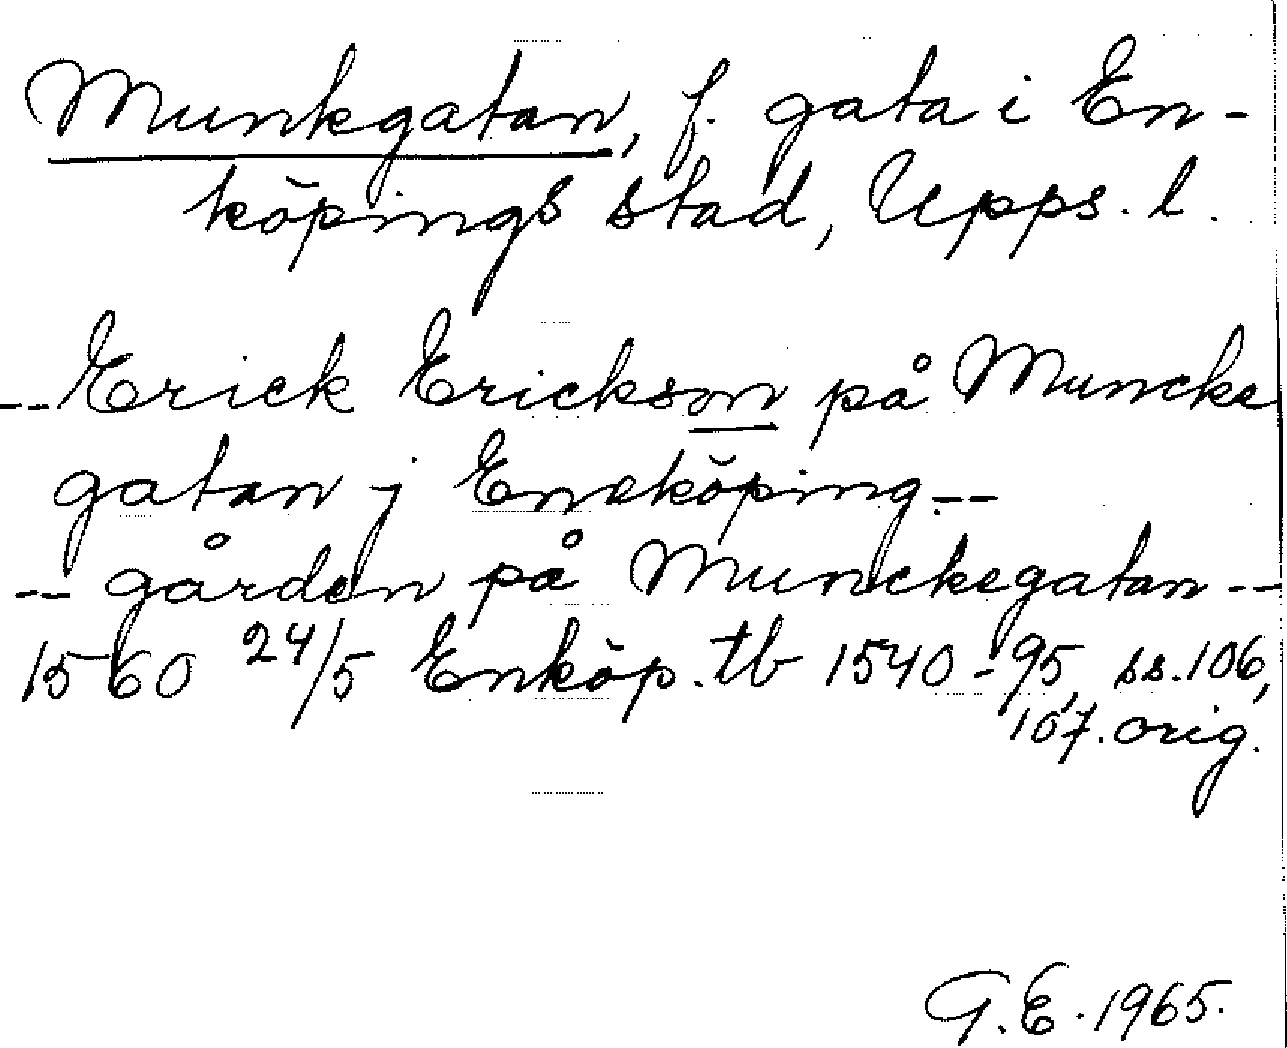 Munkgatan, f. gata i En-
köpings stad, Upps. l.
-- Erick Erickson på Muncke
gatan j Eneköping --
-- gården på Munckegatan --
1560 24/5 Enköp. tb 1540-95, ss. 106,
107. orig.
G.E. 1965.